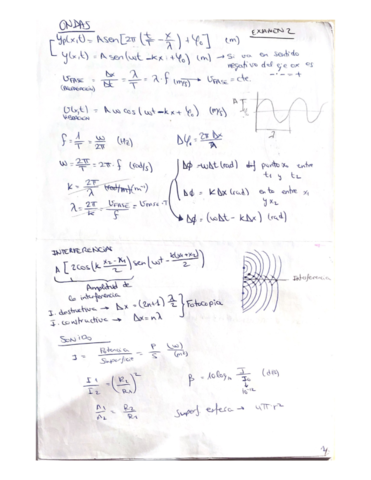 ONDAS
EXAMEN 2
y(x,t) = A sen [2π (t/T - x/λ) + φ₀] (m)
y(x,t) = A sen (ωt - kx + φ₀) (m) → Si va en sentido
negativo del eje ox es
U FASE = Δx/Δt = λ/T = λ · f (m/s) → U FASE = cte.
U(x,t) = A ω cos (ωt - kx + φ₀) (m/s)
A
T
λ
f = 1/T = ω/2π (Hz)
Δφ₀ = 2πΔx/λ
ω = 2π/T = 2π · f (rad/s)
Δφ = ωΔt (rad) dif puntos x entre
t₁ y t₂
k = 2π/λ (m⁻¹)
Δφ = kΔx (rad) entre x₁
y x₂
λ = 2π/k = U FASE/f = U FASE · T
Δφ = (ωΔt - kΔx) (rad)
INTERFERENCIAS
A [2cos (k x₂ - x₁/2) sen (ωt - k(x₁ + x₂)/2)
Amplitud de
la interferencia
Interferencia
I. destructiva → Δx = (2n+1) λ/2
Fotocopia
I. constructiva → Δx = nλ
SONIDO
I = Potencia/Superficie = P/S (W)/(m²)
I₁/I₂ = (R₂/R₁)²
β = 10 log I/I₀ (dB)
10⁻¹²
A₁/A₂ = R₂/R₁
Superf esfera → 4πr²